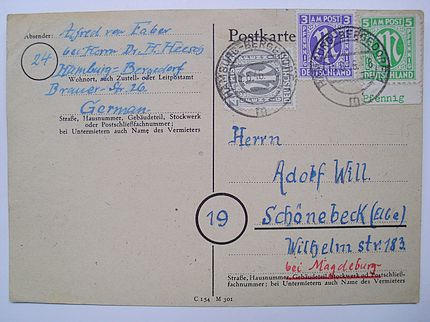 Absender: Alfred von Faber
bei Herrn Dr. H. Heesch
24
Hamburg-Bergedorf
Wohnort, auch Zustell- oder Leitpostamt
Brauer-Str. 26.
German
Straße, Hausnummer, Gebäudeteil, Stockwerk
oder Postschließfachnummer;
bei Untermietern auch Name des Vermieters
Postkarte
3 AM POST 3
DEUTSCHLAND
5 AM POST 5
DEUTSCHLAND
Pfennig
HAMBURG-BERGEDORF
m
HAMBURG-BERGEDORF
m
Herrn
Adolf Will.
19
Schönebeck (Elbe)
Wilhelm str. 183.
bei Magdeburg
Straße, Hausnummer, Gebäudeteil, Stockwerk oder Postschließ-
fachnummer; bei Untermietern auch Name des Vermieters
C 154 M 301